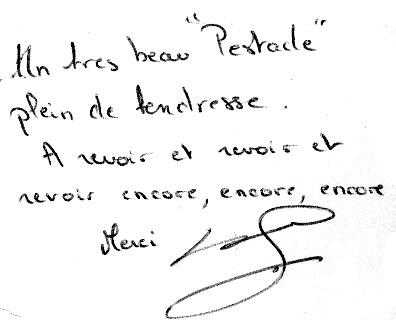 Un tres beau "Pestacle"
plein de tendresse.
A revoir et revoir et
revoir encore, encore, encore
Merci